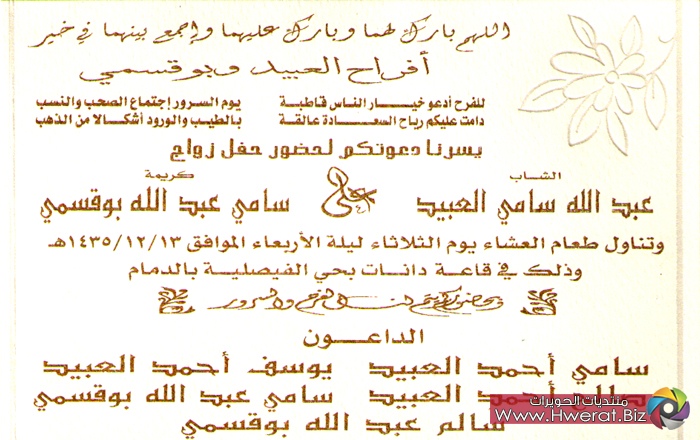 اللهم بارك لهما وبارك عليهما واجمع بينهما في خير
أفراح العبيد وبوقسمي
للفرح أدعو خيار الناس قاطبة يوم السرور إجتماع الصحب والنسب
دامت عليكم رياح السعادة عالقة بالطيب والورود أشكالا من الذهب
يسرنا دعوتكم لحضور حفل زواج
الشاب كريمة
عبد الله سامي العبيد على سامي عبد الله بوقسمي
وتناول طعام العشاء يوم الثلاثاء ليلة الأربعاء الموافق ١٤٣٥/١٢/١٣هـ
وذلك في قاعة دانات بحي الفيصلية بالدمام
وبحضوركم يتم لنا الفرح والسرور
الداعون
سامي أحمد العبيد يوسف أحمد العبيد
أحمد العبيد سامي عبد الله بوقسمي
سالم عبد الله بوقسمي
منتديات الحويرات
www.Hwerat.Biz